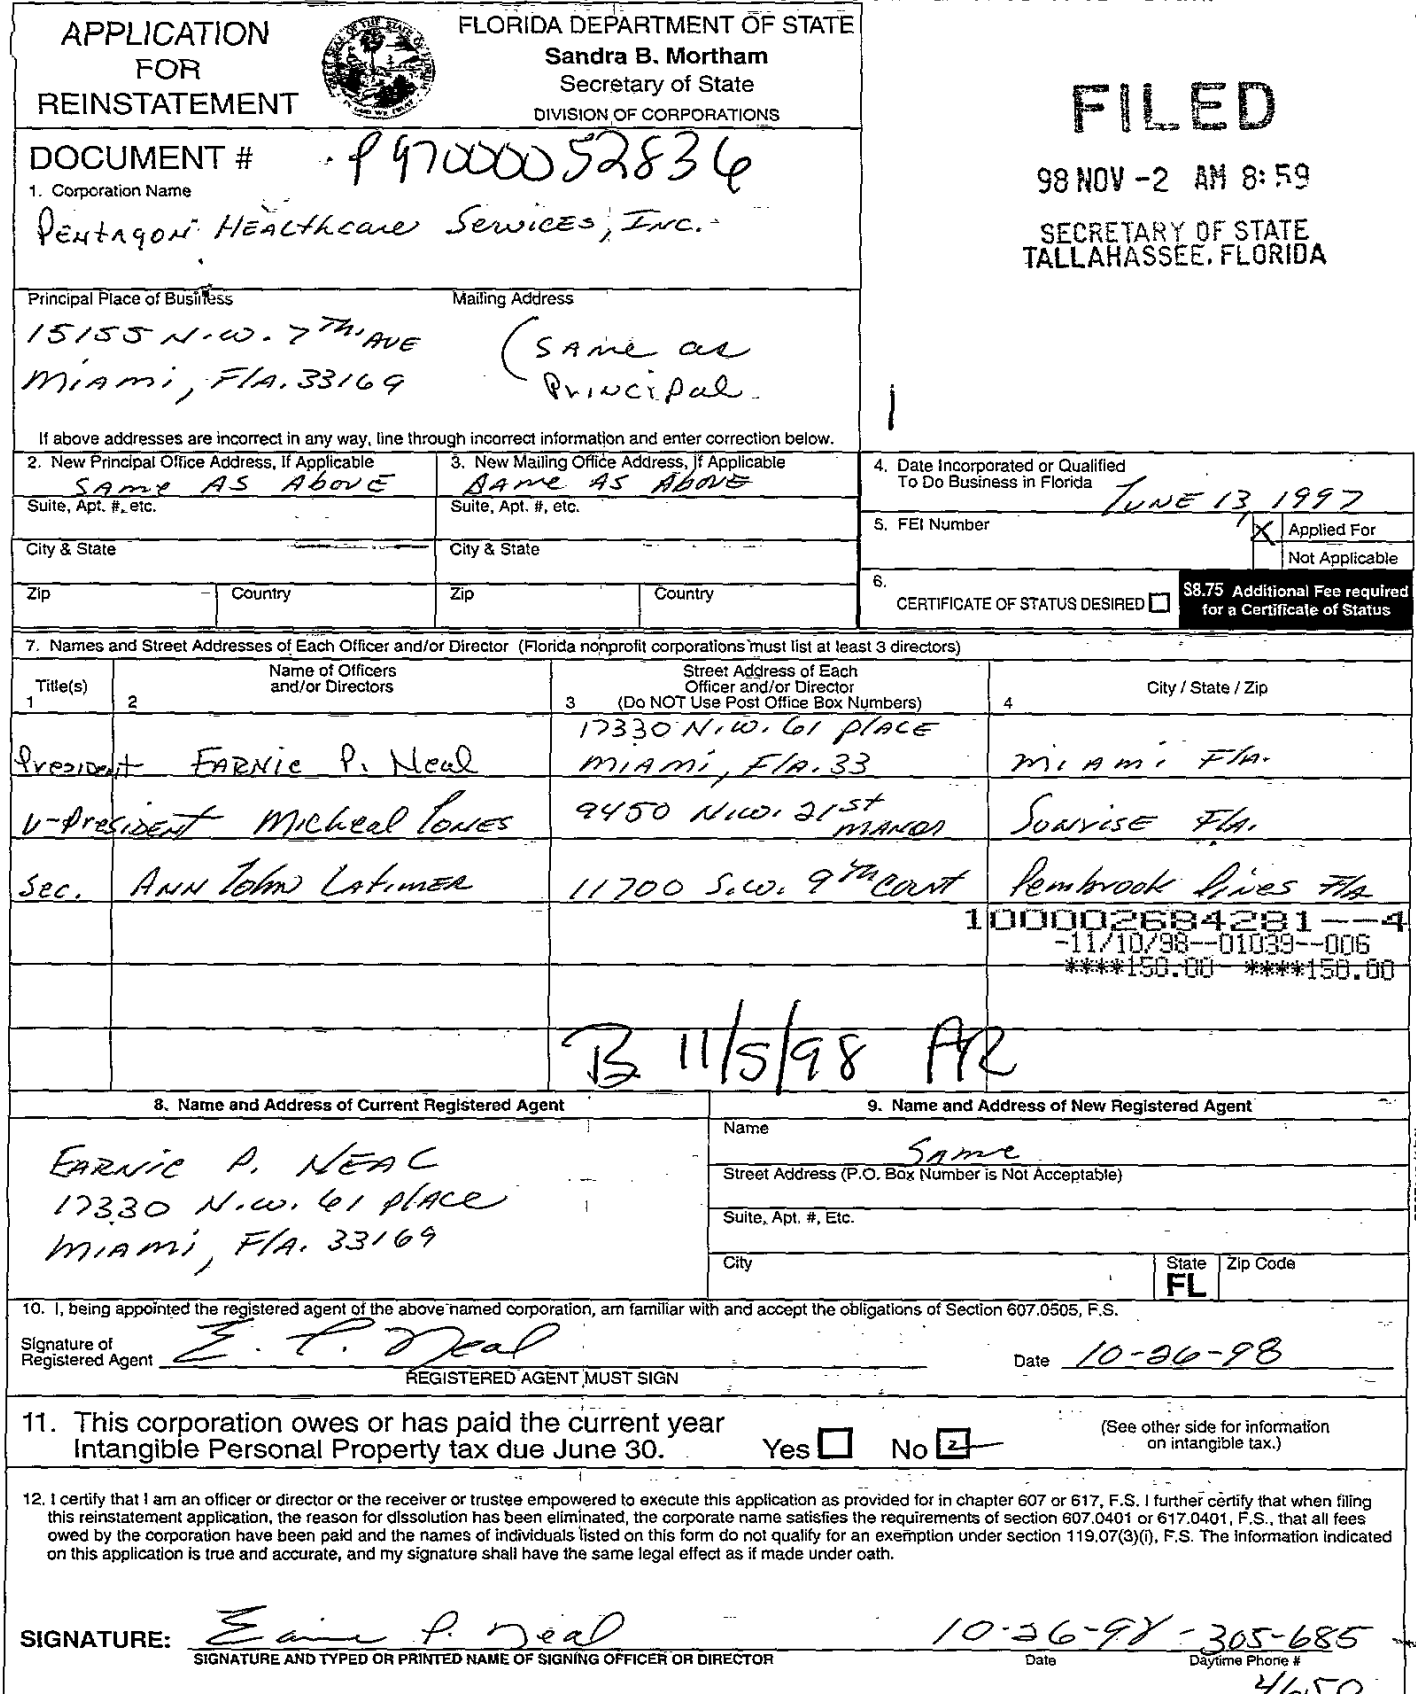 APPLICATION
FOR
REINSTATEMENT
FLORIDA DEPARTMENT OF STATE
Sandra B. Mortham
Secretary of State
DIVISION OF CORPORATIONS
FILED
98 NOV -2 AM 8:59
SECRETARY OF STATE
TALLAHASSEE, FLORIDA
DOCUMENT # P97000052836
1. Corporation Name
Pentagon Healthcare Services, Inc.
Principal Place of Business
15155 N.W. 7TH. AVE
Miami, FlA. 33169
Mailing Address
(SAme as
Principal
If above addresses are incorrect in any way, line through incorrect information and enter correction below.
2. New Principal Office Address, If Applicable
SAme AS AbovE
Suite, Apt. #, etc.
City & State
Zip Country
3. New Mailing Office Address, If Applicable
SAme AS AbovE
Suite, Apt. #, etc.
City & State
Zip Country
4. Date Incorporated or Qualified
To Do Business in Florida JUNE 13, 1997
5. FEI Number
X Applied For
Not Applicable
6.
CERTIFICATE OF STATUS DESIRED
$8.75 Additional Fee required
for a Certificate of Status
7. Names and Street Addresses of Each Officer and/or Director (Florida nonprofit corporations must list at least 3 directors)
Title(s)
1
Name of Officers
and/or Directors
2
Street Address of Each
Officer and/or Director
3 (Do NOT Use Post Office Box Numbers)
City / State / Zip
4
President EARNie P. Neal 17330 N.W. 61 PlACE
Miami, FlA. 33 Miami FlA.
V-President Micheal JONES 9450 N.W. 21st
MANOR Sunrise FlA.
Sec. ANN John LAtimer 11700 S.W. 9th Court Pembrook Pines FlA
100002684281--4
-11/10/98--01039--006
****150.00 ****150.00
B 11/5/98 AR
8. Name and Address of Current Registered Agent
EARNie P. NEAL
17330 N.W. 61 PlAce
Miami, FlA. 33169
9. Name and Address of New Registered Agent
Name
SAme
Street Address (P.O. Box Number is Not Acceptable)
Suite, Apt. #, Etc.
City State Zip Code
FL
10. I, being appointed the registered agent of the above named corporation, am familiar with and accept the obligations of Section 607.0505, F.S.
Signature of
Registered Agent E. P. Neal Date 10-26-98
REGISTERED AGENT MUST SIGN
11. This corporation owes or has paid the current year
Intangible Personal Property tax due June 30. Yes No
(See other side for information
on intangible tax.)
12. I certify that I am an officer or director or the receiver or trustee empowered to execute this application as provided for in chapter 607 or 617, F.S. I further certify that when filing
this reinstatement application, the reason for dissolution has been eliminated, the corporate name satisfies the requirements of section 607.0401 or 617.0401, F.S., that all fees
owed by the corporation have been paid and the names of individuals listed on this form do not qualify for an exemption under section 119.07(3)(i), F.S. The information indicated
on this application is true and accurate, and my signature shall have the same legal effect as if made under oath.
SIGNATURE: Earnie P. Neal 10-26-98 - 305-685
SIGNATURE AND TYPED OR PRINTED NAME OF SIGNING OFFICER OR DIRECTOR Date Daytime Phone #
4650